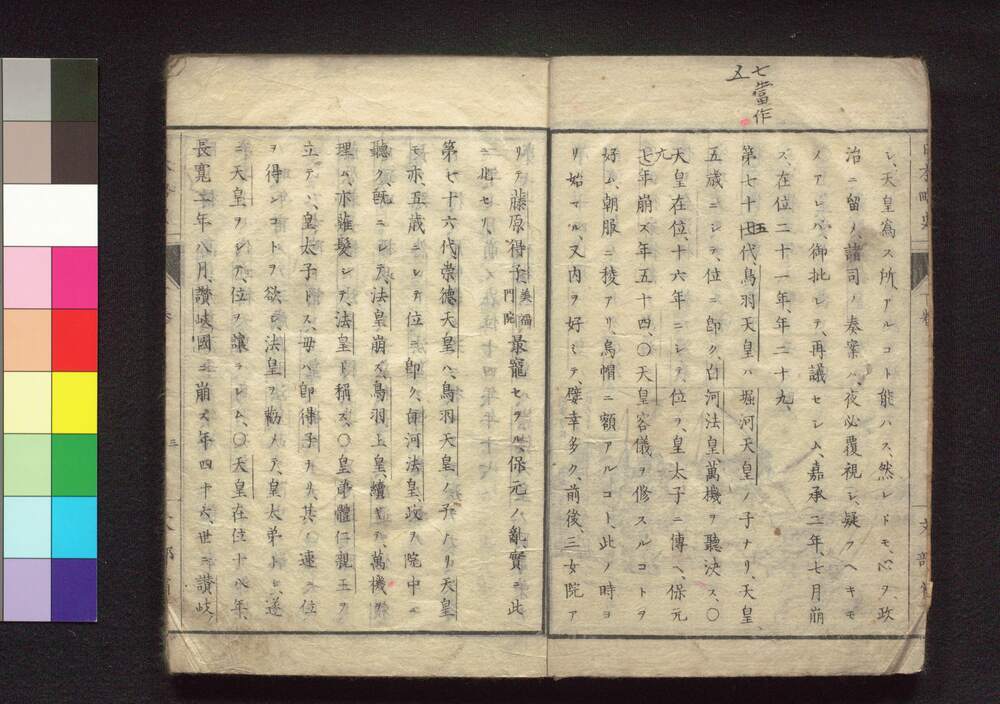 七當作
五
シ、天皇爲ス所アルコト能ハス、然レドモ、心ヲ政
治ニ留ノ、諸司ノ奏案ハ、夜必覆視シ、疑フヘキモ
ノアレバ、御批シテ、再議セシム、嘉承二年、七月崩
ス、在位二十一年、年二十九、
第七十四代、鳥羽天皇ハ、堀河天皇ノ子ナリ、天皇、
五
五歳ニシテ、位ニ卽ク、白河法皇、萬機ヲ聽決ス、〇
天皇在位、十六年ニシテ、位ヲ、皇太子ニ傳ヘ、保元
元
七年崩ズ、年五十四、〇天皇容儀ヲ修スルコトヲ
好ム、朝服ニ稜アリ、烏帽ニ額アルコト、此ノ時ヨ
リ始マル、又内ヲ好ミテ、嬖幸多ク、前後、三女院ア
リテ、藤原得子、美福門院最寵セラル、保元ノ亂、實ニ此
ニ兆セリ、
第七十六代、崇德天皇ハ、鳥羽天皇ノ子ナリ、天皇
モ亦、五歳ニシテ、位ニ卽ク、白河法皇、政ヲ院中ニ
聽ク、既ニシテ、法皇崩ズ、鳥羽上皇、續テ、萬機ヲ
理ム、亦薙髮シテ、法皇ト稱ス、〇皇弟體仁親王ヲ
立テヽ、皇太子トス、母ハ卽得子ナリ、其ノ速ニ位
ヲ得ンコトヲ欲シ、法皇ヲ勸メテ、皇太弟トシ、遂
ニ天皇ヲシテ、位ヲ讓ラシム、〇天皇在位十八年、
長寬二年八月、讃岐國ニ崩ズ、年四十六、世ニ讃岐
三